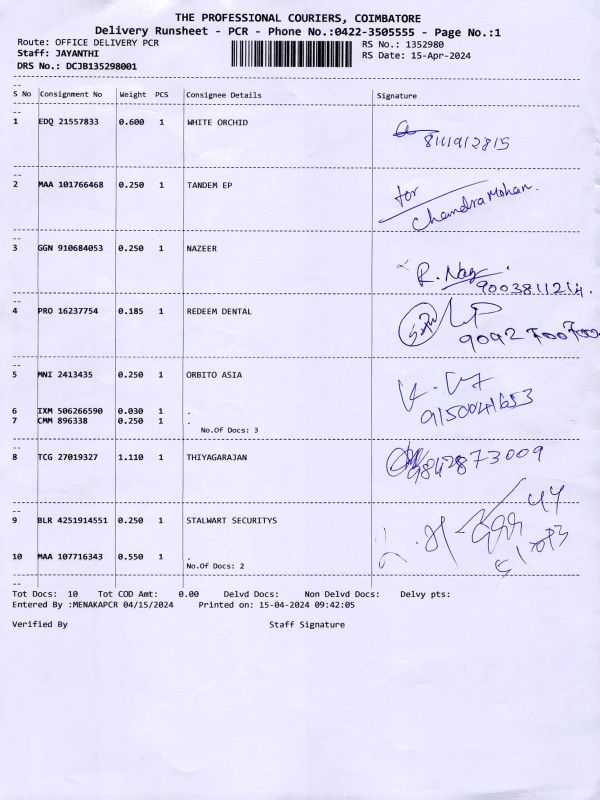 THE PROFESSIONAL COURIERS, COIMBATORE
Delivery Runsheet - PCR - Phone No.:0422-3505555 - Page No.:1
Route: OFFICE DELIVERY PCR
RS No.: 1352980
Staff: JAYANTHI
RS Date: 15-Apr-2024
DRS No.: DCJB135298001
S No Consignment No Weight PCS Consignee Details Signature
1 EDQ 21557833 0.600 1 WHITE ORCHID
8111912815
2 MAA 101766468 0.250 1 TANDEM EP
for
Chandra Mohan.
3 GGN 910684053 0.250 1 NAZEER
9003811214.
4 PRO 16237754 0.185 1 REDEEM DENTAL
5 MNI 2413435 0.250 1 ORBITO ASIA
9150041653
6 IXM 506266590 0.030 1 .
7 CMM 896338 0.250 1 .
No.Of Docs: 3
8 TCG 27019327 1.110 1 THIYAGARAJAN
9842873009
9 BLR 4251914551 0.250 1 STALWART SECURITYS
10 MAA 107716343 0.550 1 .
No.Of Docs: 2
Tot Docs: 10 Tot COD Amt: 0.00 Delvd Docs: Non Delvd Docs: Delvy pts:
Entered By :MENAKAPCR 04/15/2024 Printed on: 15-04-2024 09:42:05
Verified By Staff Signature